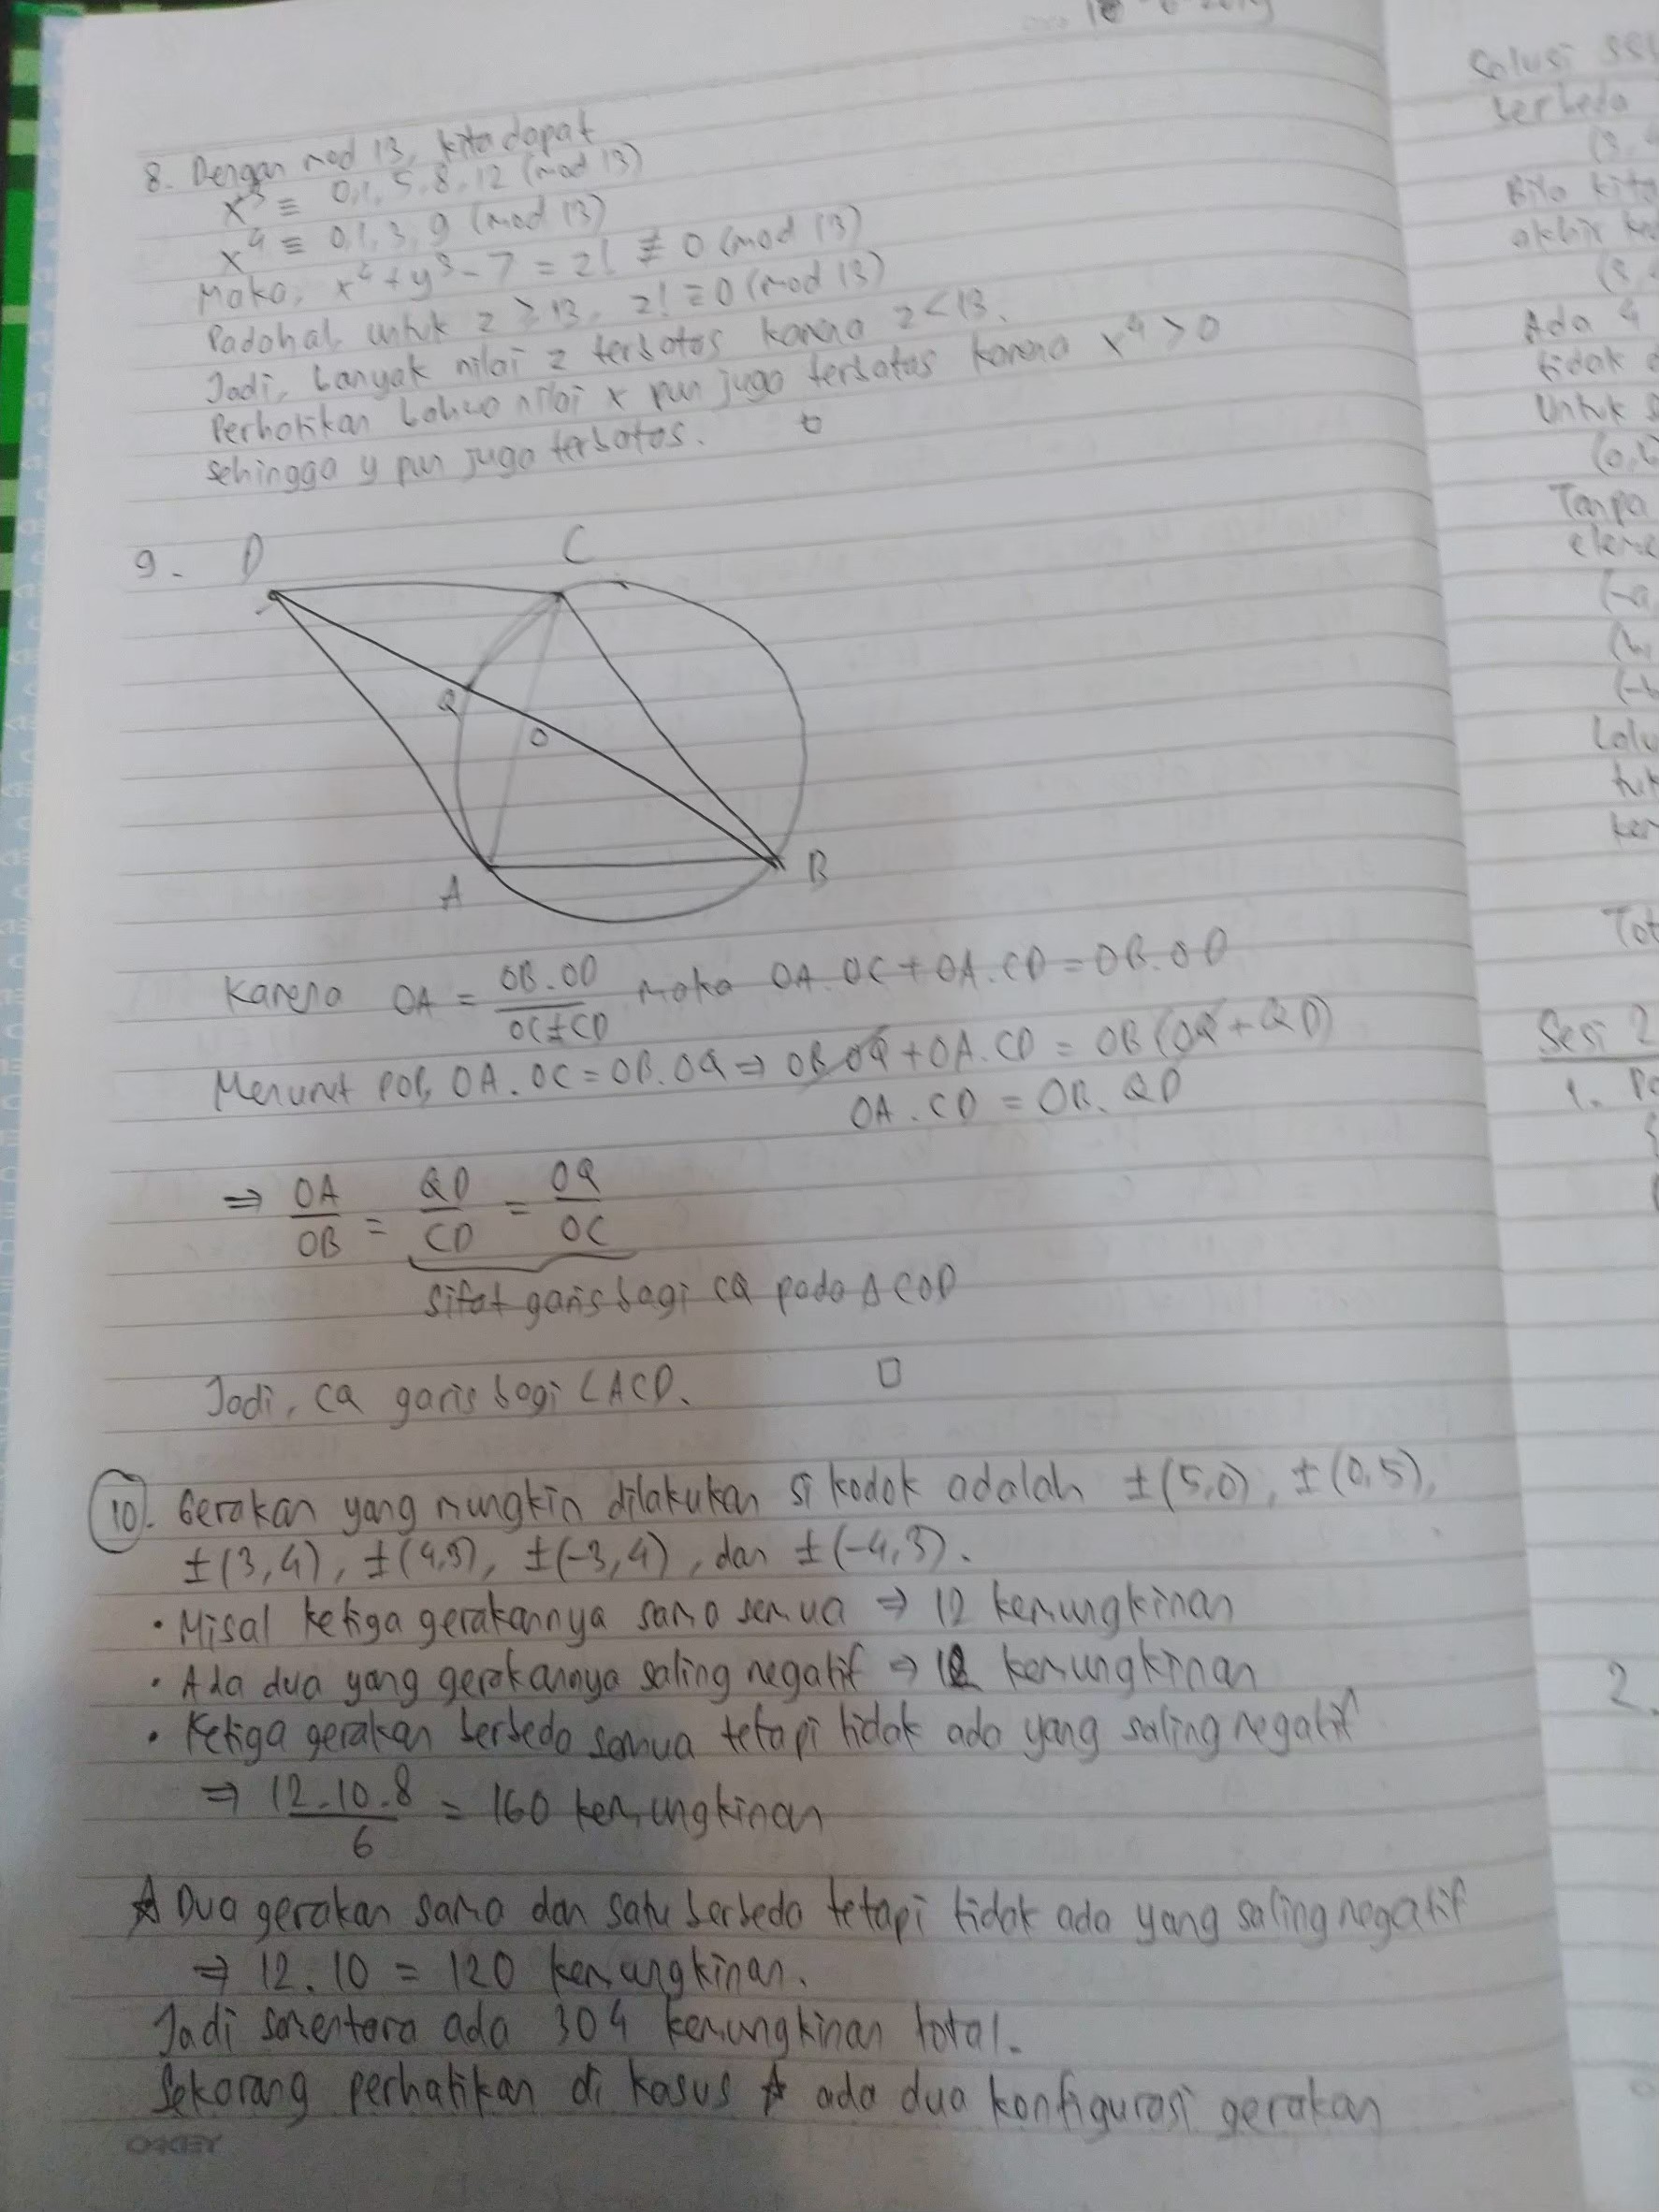 8. Dengan mod 13, kita dapat
x³ ≡ 0,1,5,8,12 (mod 13)
x⁴ ≡ 0,1,3,9 (mod 13)
Maka, x⁴ + y³ - 7 = z! ≢ 0 (mod 13)
Padahal, untuk z ≥ 13, z! ≡ 0 (mod 13)
Jadi, banyak nilai z terbatas karena z < 13.
Perhatikan bahwa nilai x pun juga terbatas karena x⁴ > 0
sehingga y pun juga terbatas. □
9. D C
Q
O
A B
Karena OA = OB.OD / OC+CD maka OA.OC + OA.CD = OB.OD
Menurut POP, OA.OC = OB.OQ ⇒ OB.OQ + OA.CD = OB(OQ + QD)
OA.CD = OB.QD
⇒ OA/OB = QD/CD = OQ/OC
Sifat garis bagi CQ pada Δ COD
Jadi, CQ garis bagi ∠ACD. □
10. Gerakan yang mungkin dilakukan si kodok adalah ±(5,0), ±(0,5),
±(3,4), ±(4,3), ±(-3,4), dan ±(-4,3).
• Misal ketiga gerakannya sama semua ⇒ 12 kemungkinan
• Ada dua yang gerakannya saling negatif ⇒ 12 kemungkinan
• Ketiga gerakan berbeda semua tetapi tidak ada yang saling negatif
⇒ 12.10.8 / 6 = 160 kemungkinan
☆ Dua gerakan sama dan satu berbeda tetapi tidak ada yang saling negatif
⇒ 12.10 = 120 kemungkinan.
Jadi sementara ada 304 kemungkinan total.
Sekarang perhatikan di kasus ☆ ada dua konfigurasi gerakan
Solusi
berbeda
(3,
Bila kita
akhir
(3,
Ada 4
tidak
Untuk
(0,
Tanpa
(-a,
(-b
Lalu
Sesi 2
1.
2.